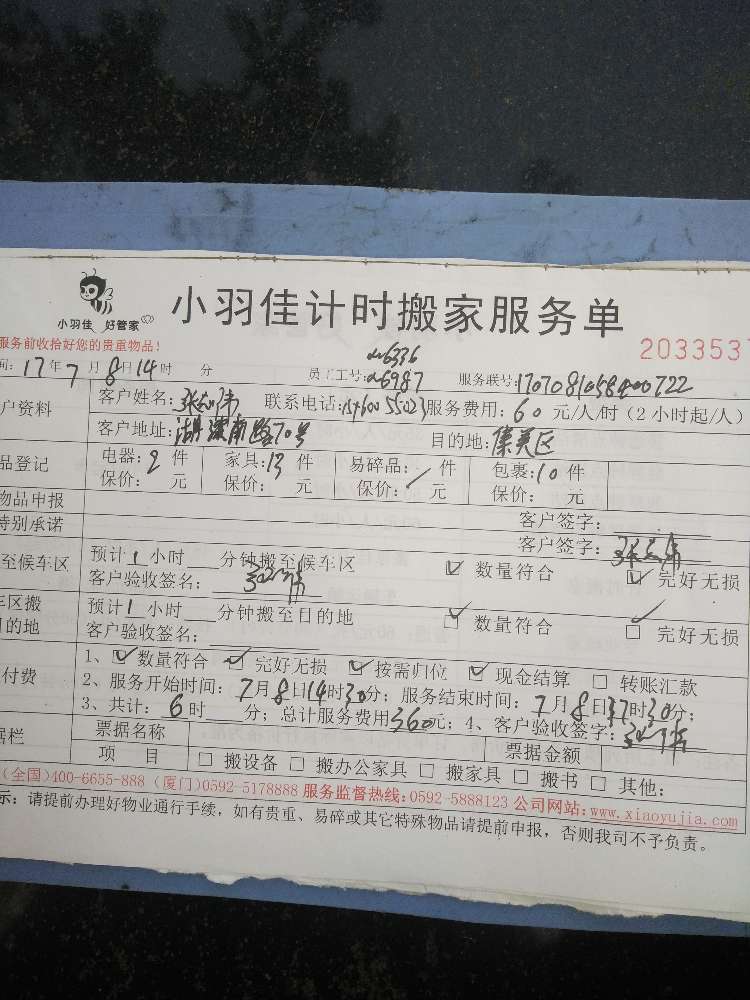 小羽佳 好管家
小羽佳计时搬家服务单
服务前收拾好您的贵重物品!
2033537
间: 17年7月8日14时 分 员工工号: 6336 6987 服务联号: 170708105800722
户资料 客户姓名: 张 伟 联系电话: 服务费用: 60 元/人/时 (2小时起/人)
客户地址: 湖滨南路70号 目的地: 集美区
品登记 电器: 2 件 家具: 13 件 易碎品: 件 包裹: 10 件
保价: 元 保价: 元 保价: 元 保价: 元
物品申报 客户签字:
特别承诺 客户签字:
至候车区 预计1小时 分钟搬至候车区 ☑ 数量符合 ☑ 完好无损
客户验收签名:
车区搬 预计1小时 分钟搬至目的地 ☑ 数量符合 ☑ 完好无损
目的地 客户验收签名:
付费 1、☑ 数量符合 ☑ 完好无损 ☑ 按需归位 ☑ 现金结算 □ 转账汇款
2、服务开始时间: 7月8日14时30分; 服务结束时间: 7月8日17时30分;
3、共计: 6时 分; 总计服务费用360元; 4、客户验收签字:
据栏 票据名称 票据金额
项 目 □ 搬设备 □ 搬办公家具 □ 搬家具 □ 搬书 □ 其他:
(全国)400-6655-888 (厦门)0592-5178888 服务监督热线:0592-5888123 公司网站:www.xiaoyujia.com
示: 请提前办理好物业通行手续, 如有贵重、易碎或其它特殊物品请提前申报, 否则我司不予负责。